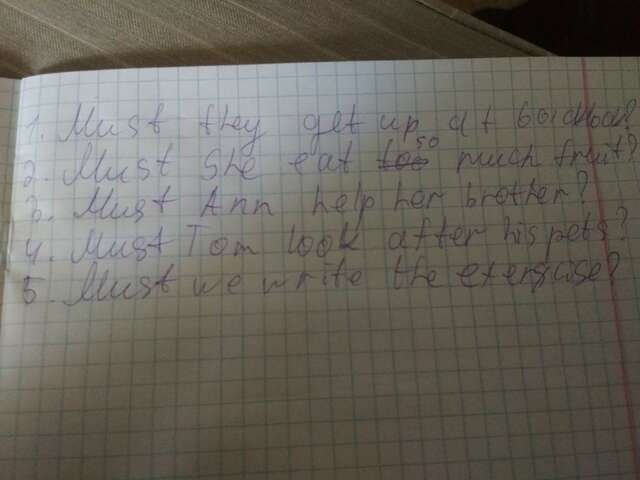 1. Must they get up at 6 o'clock?
2. Must she eat so much fruit?
3. Must Ann help her brother?
4. Must Tom look after his pets?
5. Must we write the exercise?